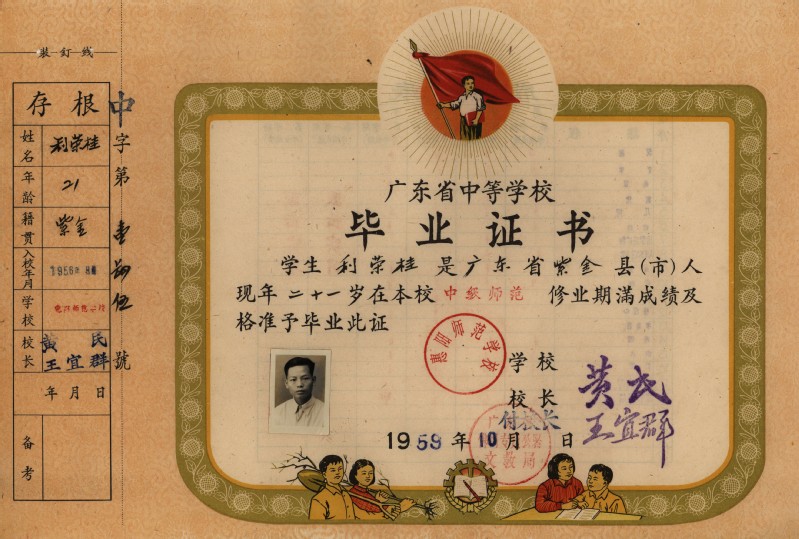 装订线
存根
姓名 利荣桂
年龄 21
籍贯 紫金
入校年月 1956年
学校
校长 黄民 王宜群
年月日
备考
中字第 号
广东省中等学校
毕业证书
学生 利荣桂 是广东省紫金县(市)人
现年 二十一岁在本校 中级师范 修业期满成绩及
格准予毕业此证
惠阳师范学校
学校
校长 黄民
付校长 王宜群
1959年10月 日
文教局